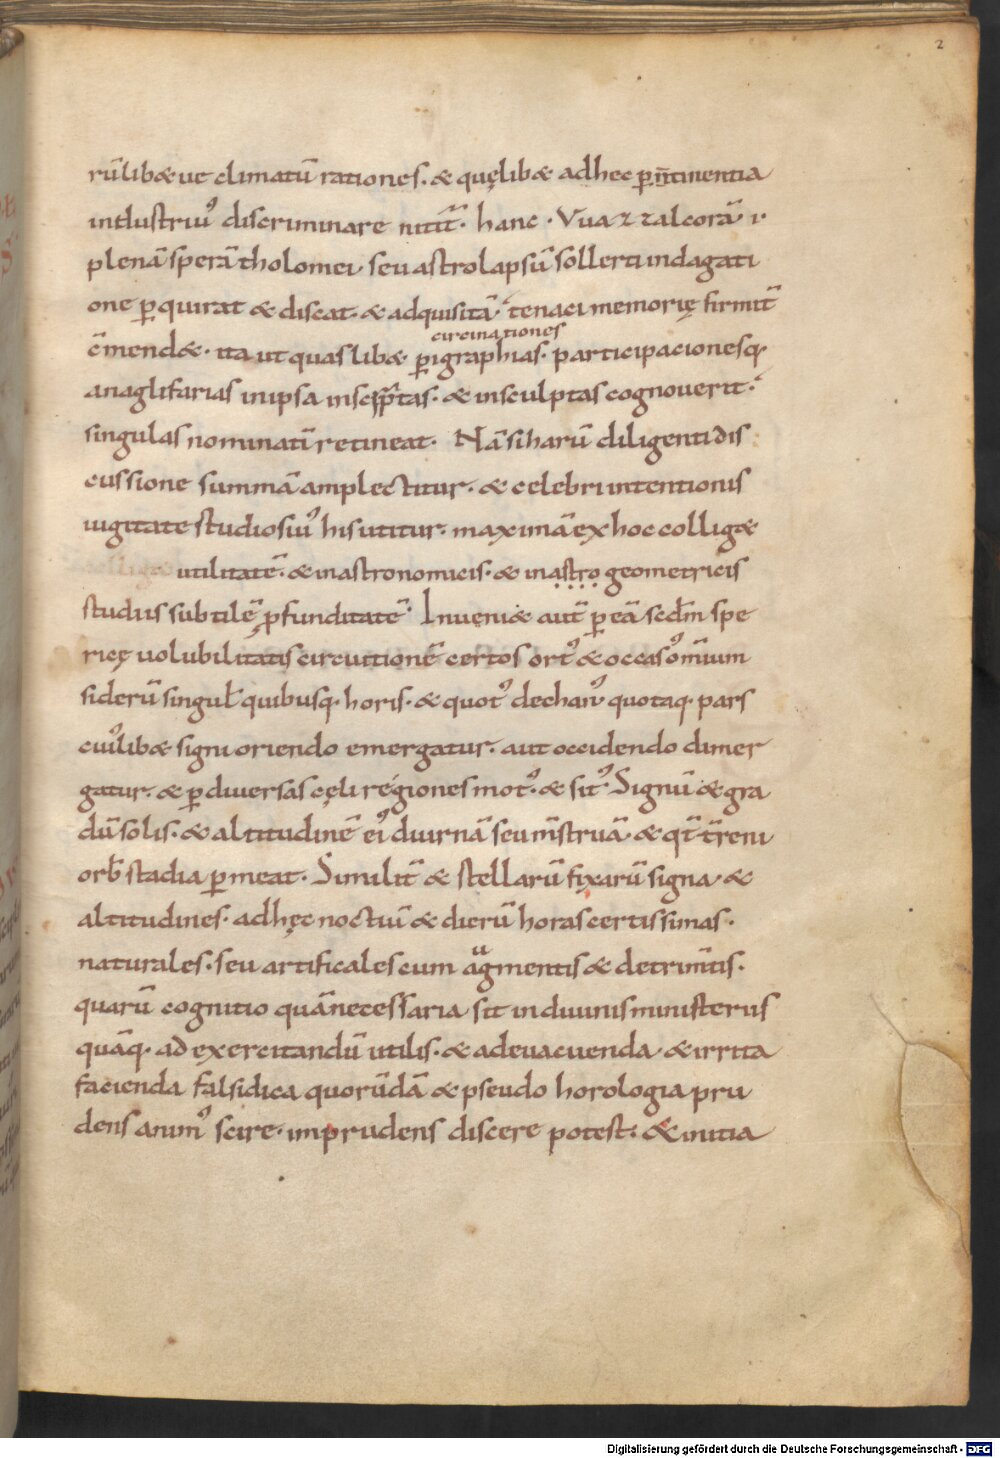 2
rū libæ ut climatū rationes. & quęlibæ adhec ꝑtinentia
industriuꝰ discriminare nitit̄. hanc. Vuazzalcorā. i.
plenā sperā tholomei. seu astrolapsū sollerti indagati
one ꝑquirat & discat. & adquisitā. tenaci memorię firmit̄
cīmendæ. ita ut quaslibæ. ꝑigraphias. participacionesq.
circinationes
anaglifarias inipsa inscriptas. & insculptas cognoverit.
singulas nominatī retineat. Nā si harū diligenti dis
cussione summā amplectitur. & celebri intentionis
iugitate studiosiuꝰ his utitur. maximā ex hoc colligæ
utilitatē. & in astronomicis. & in astro geometricis
studiis subtilē ꝓfunditatē. Inveniæ autē ꝑ eā scdm̄ spe
ricę volubilitatis circuitionē certos ortꝰ & occasꝰ omīum
siderū singul̄ quibusq. horis. & quotꝰ dechanꝰ. quotaq. pars
cuiꝰlibæ signi oriendo emergatur. aut occidendo dimer
gatur. & ꝑ diversas cęli regiones motꝰ. & sitꝰ. Signū & gra
dū solis. & altitudinē eiꝰ diurnā seu mīstruā. & qt̄ t̄reni
orb̄ stadia ꝑmeat. Similit̄ & stellarū fixarū signa. &
altitudines. adhęc noctiū & dierū horas certissimas.
naturales. seu artificales cum augmentis & detrim̄tis.
quarū cognitio quā necessaria sit in divinis ministeriis
quāq. ad exercitandū utilis. & ad evacuenda. & irrita
facienda falsidica quorūdā & pseudo horologia pru
dens animꝰ scire. imprudens discere potest. & initia
Digitalisierung gefördert durch die Deutsche Forschungsgemeinschaft - DFG